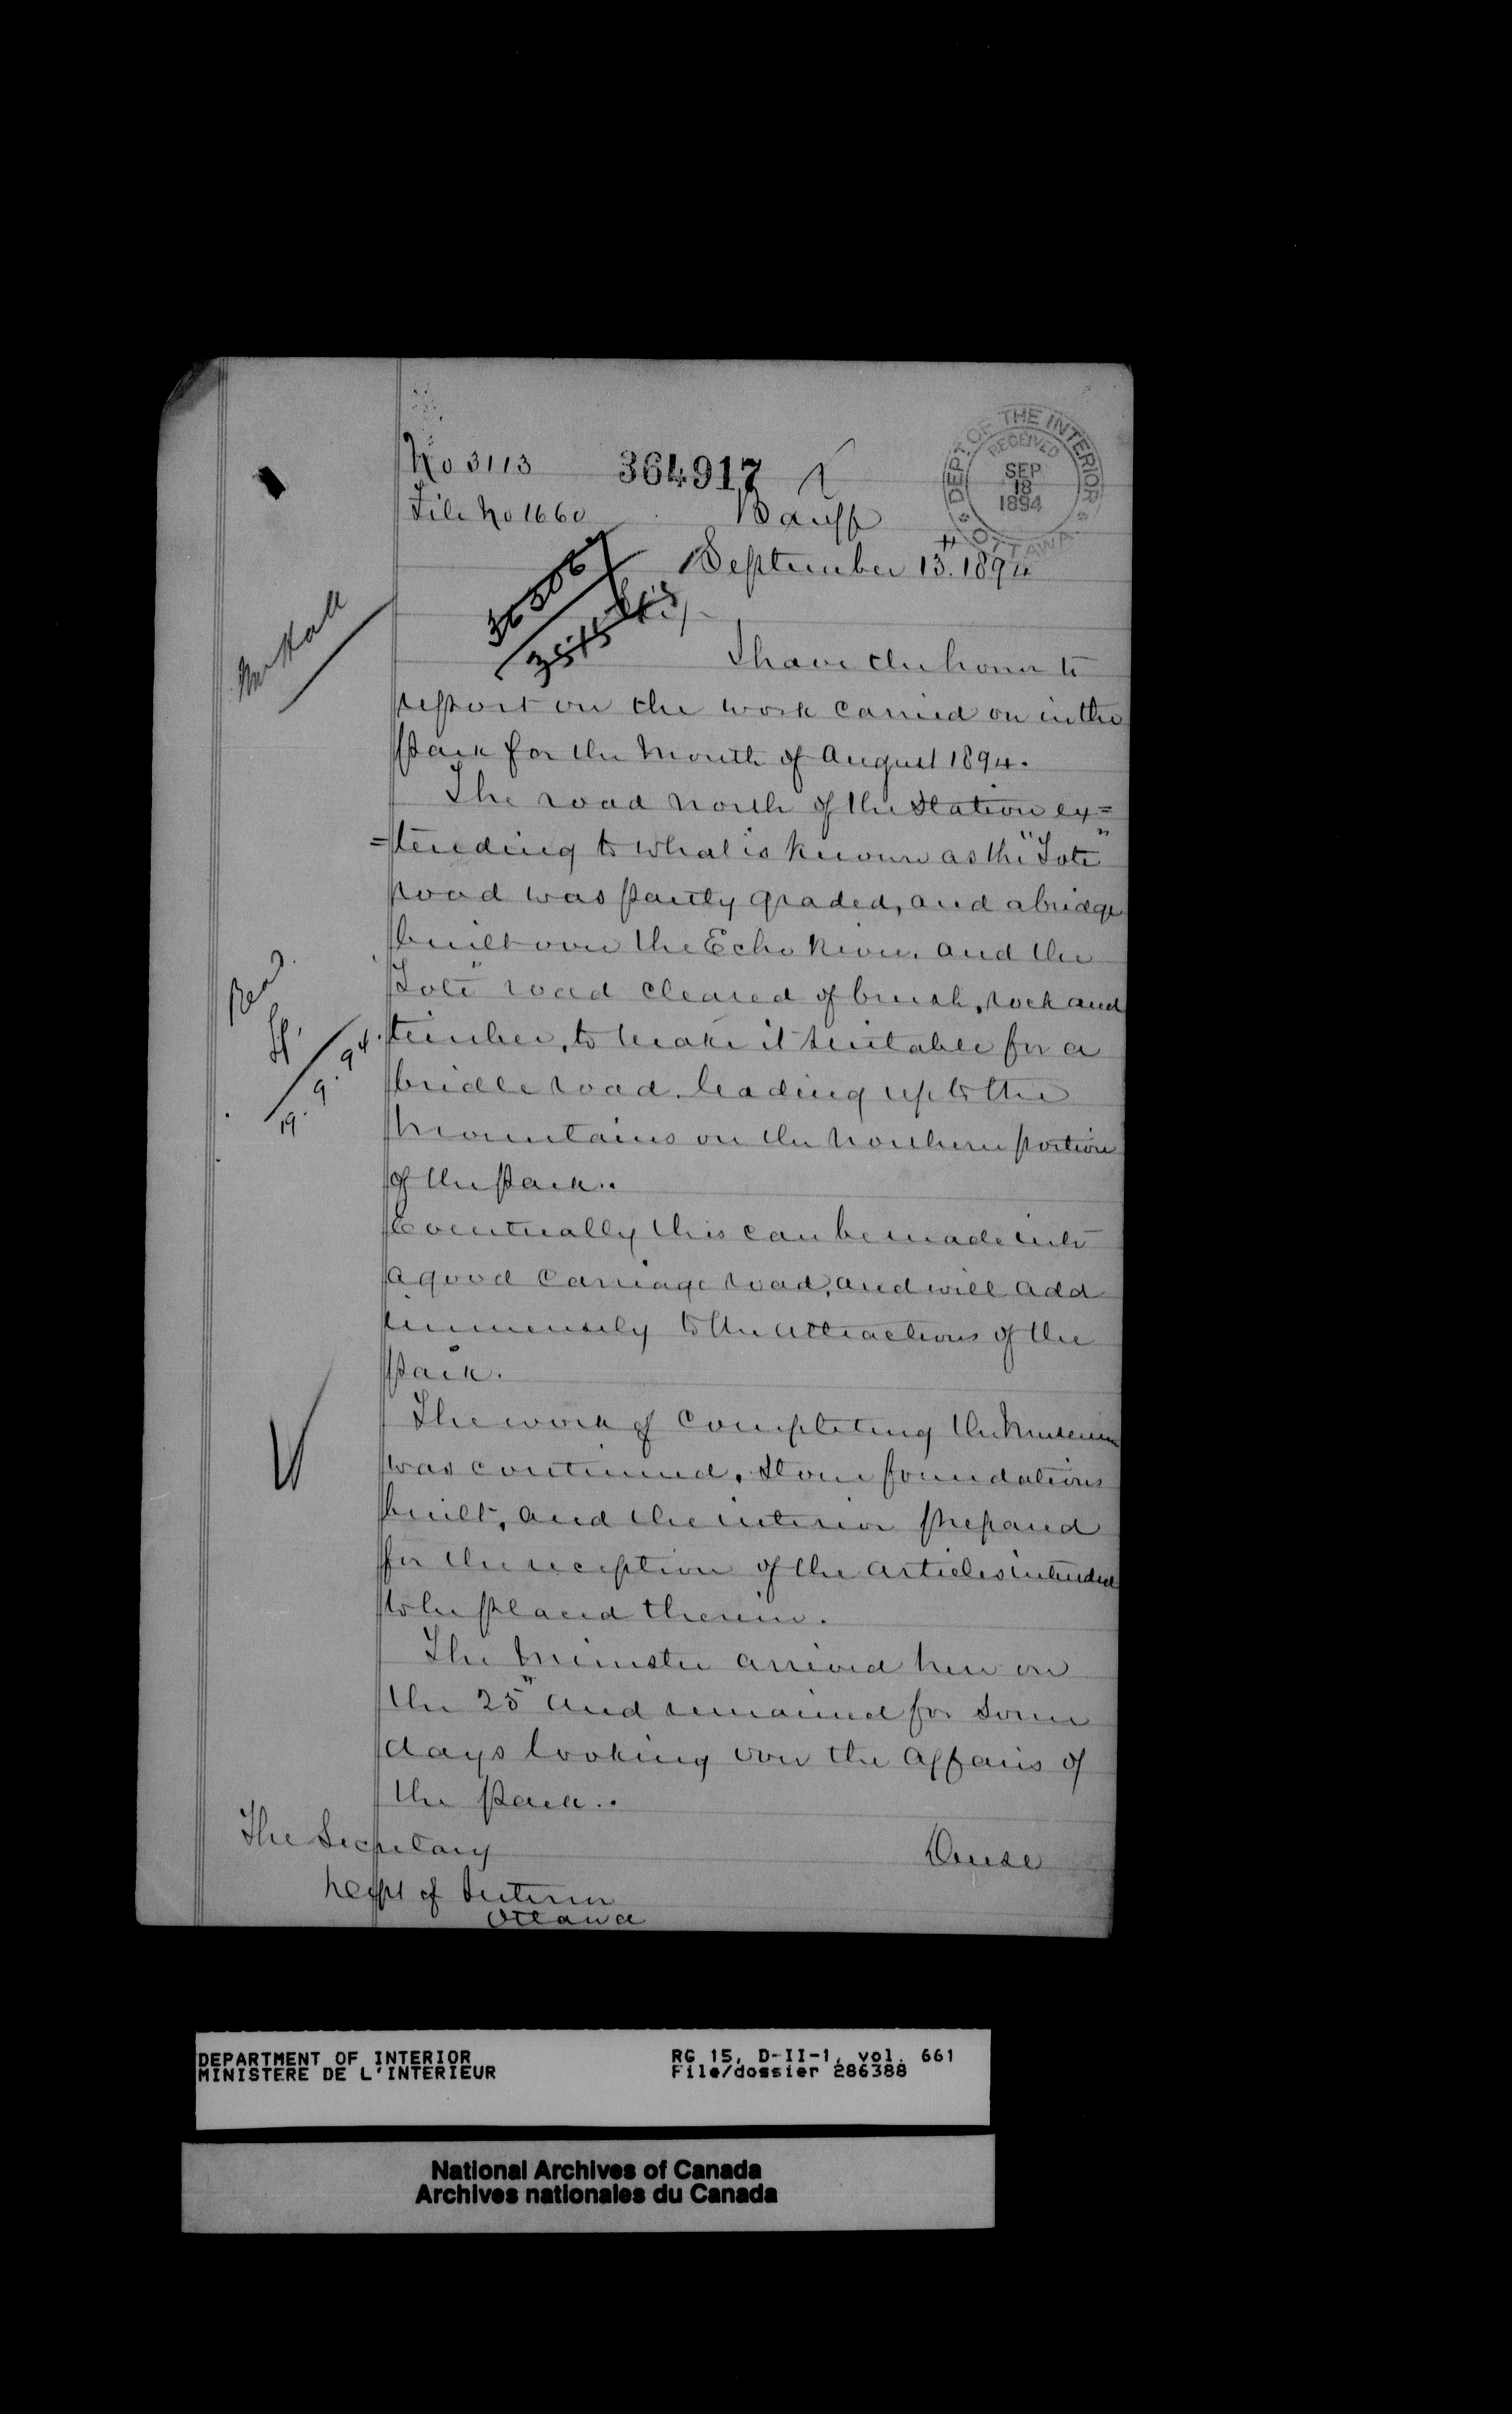 No 3113
364917
File No 1660
DEPT OF THE INTERIOR
RECEIVED
SEP
18
1894
OTTAWA
Banff
September 13th. 1894
Sir/
Mr Hall
I have the honor to
report on the work carried on in the
park for the Month of August 1894.
The road North of the Station ex=
=tending to what is known as the "Tote"
road was partly graded, and a bridge
built over the Echo River, and the
Tote" road cleared of brush, rock and
timber, to make it suitable for a
bridle road leading up to the
Mountains on the Northern portion
of the park..
Read
19.9.94.
Eventually this can be made into
a good Carriage road, and will add
immensely to the attractions of the
park.
The work of Completing the Museum
was continued, Stone foundations
built, and the interior prepared
for the reception of the articles intended
to be placed therein.
The Minister arrived here on
the 25" and remained for Some
days looking over the affairs of
the park..
The Secretary
Dept of Interior
Ottawa
DEPARTMENT OF INTERIOR
MINISTERE DE L'INTERIEUR
RG 15, D-II-1, vol. 661
File/dossier 286388
National Archives of Canada
Archives nationales du Canada